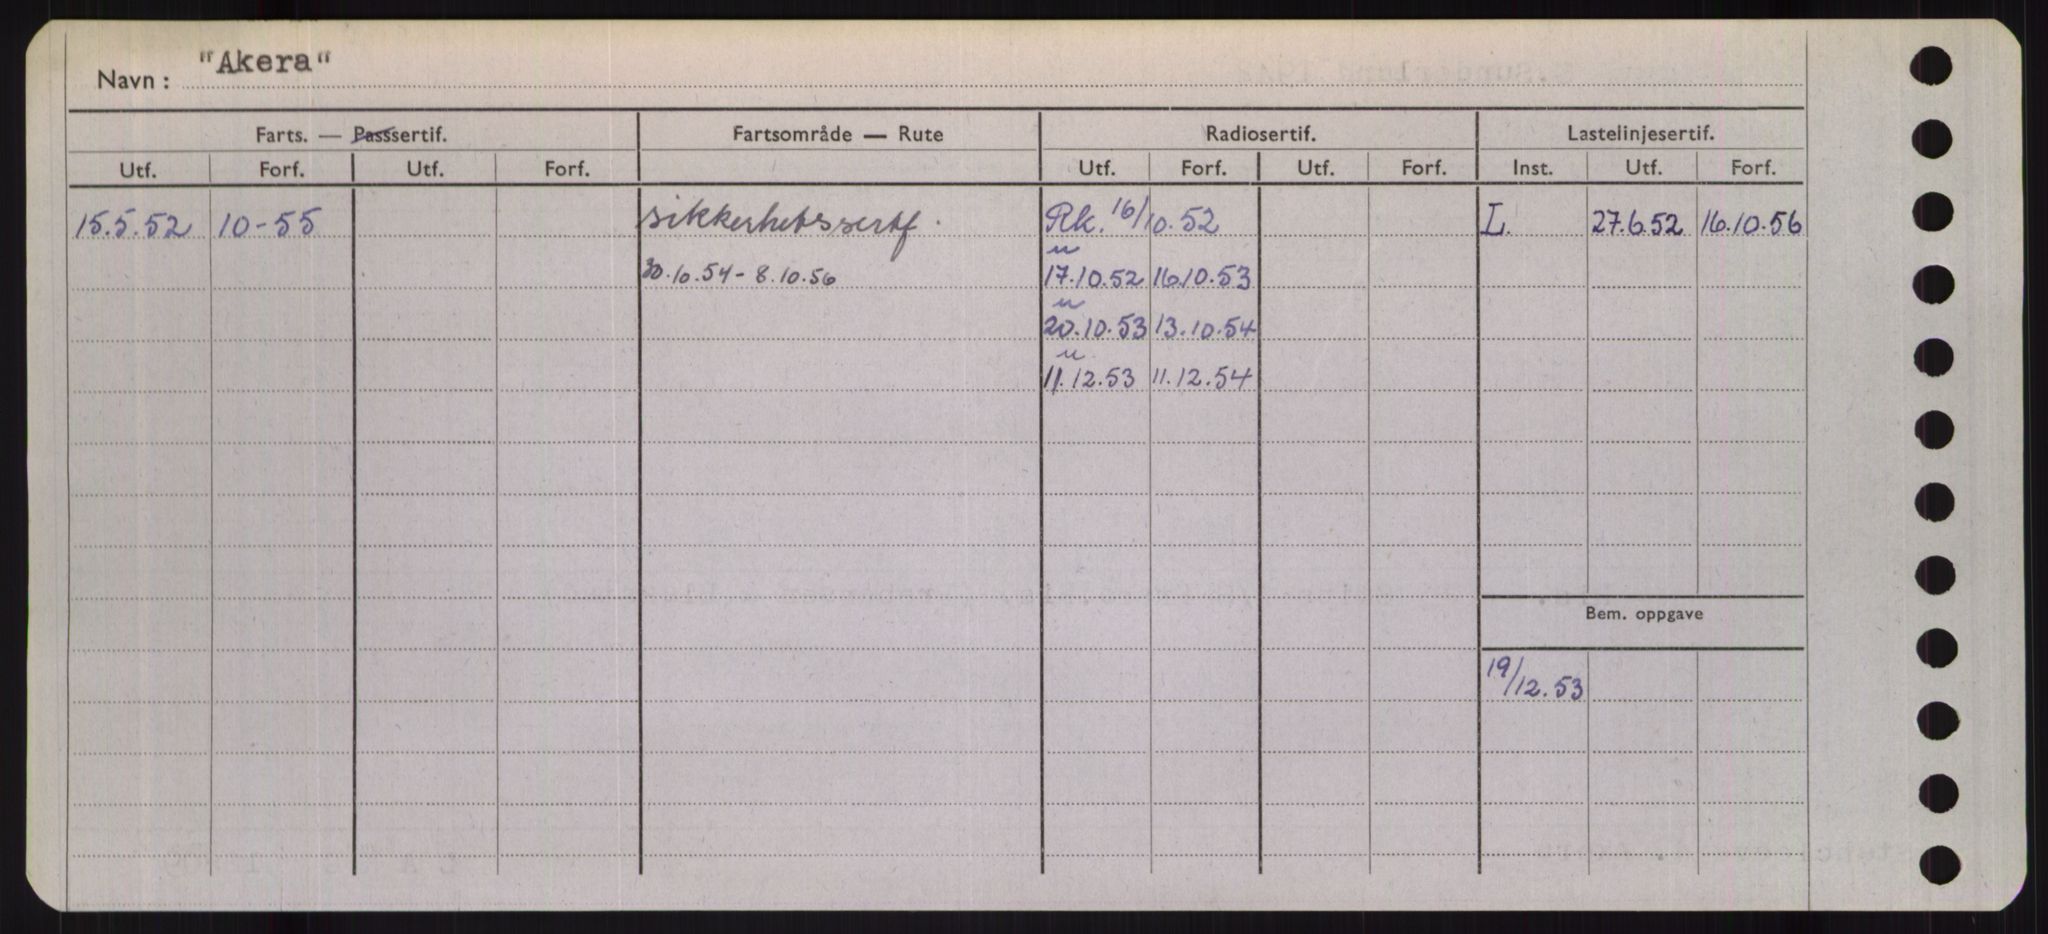 Navn: "Akera"
Farts. — Passsertif. Fartsområde — Rute Radiosertif. Lastelinjesertif.
Utf. Forf. Utf. Forf. Utf. Forf. Utf. Forf. Inst. Utf. Forf.
15.5.52 10-55 sikkerhetssertf. Rk. 16/10.52 L. 27.6.52 16.10.56
u
30.10.54 - 8.10.56 17.10.52 16.10.53
u
20.10.53 13.10.54
u
11.12.53 11.12.54
Bem. oppgave
19/12.53